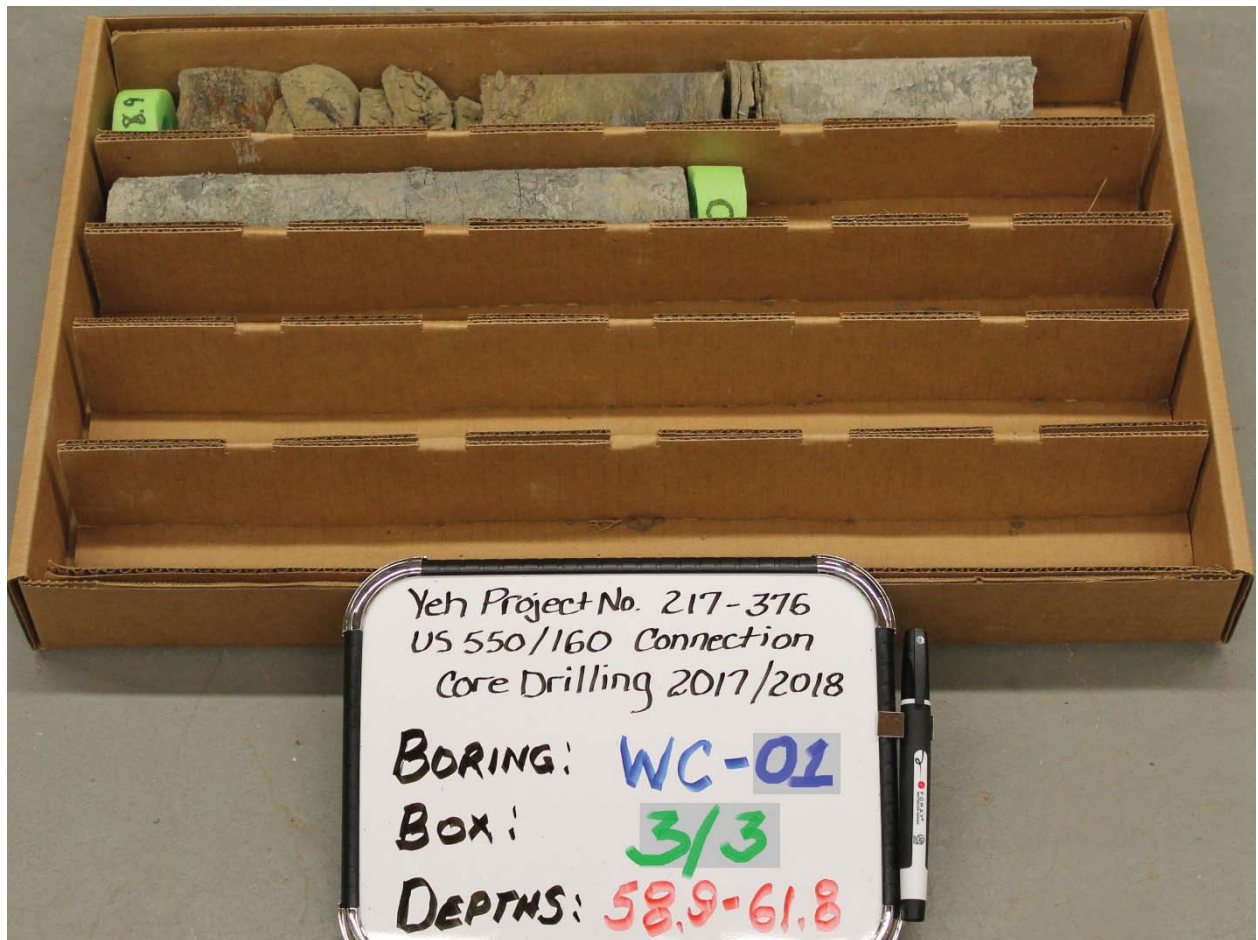 8.9
Yeh Project No. 217-376
US 550/160 Connection
Core Drilling 2017/2018
BORING: WC-01
BOX: 3/3
DEPTHS: 58.9-61.8